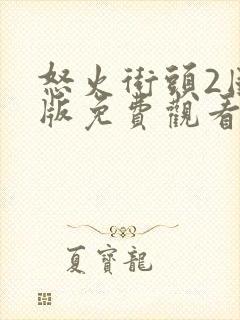 怒火街頭2國
版免費觀看
夏寶龍